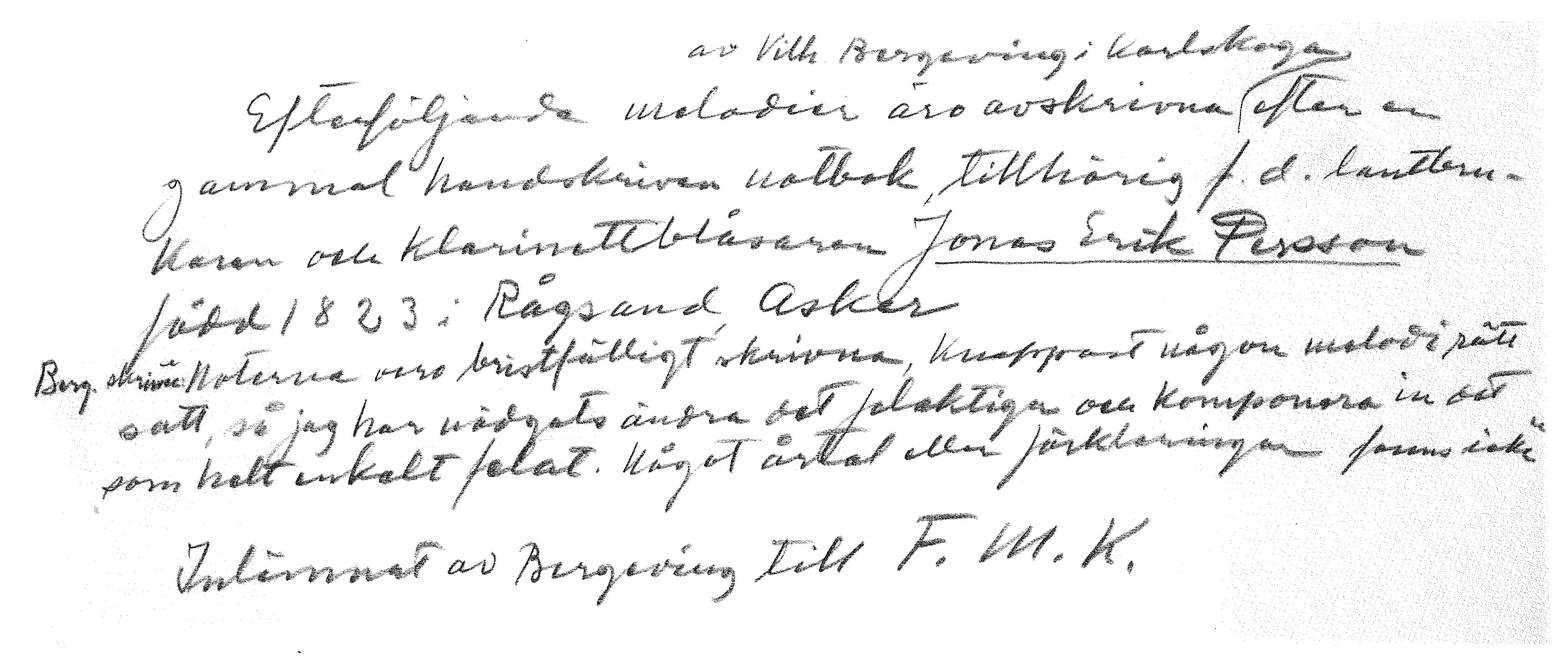 av Vilh Bergeving i Karlskoga
Efterföljande melodier äro avskrivna efter en
gammal handskriven notbok, tillhörig f. d. lantbru-
karen och klarinettblåsaren Jonas Erik Persson
född 1823 i Rågsand, Asker
Berg. skriver: Noterna voro bristfälligt skrivna, knappast någon melodi rätt
satt, så jag har nödgats ändra det felaktiga och komponera in det
som helt enkelt felat. Något årtal eller förklaringar fanns icke"
Inlämnat av Bergeving till F. M. K.